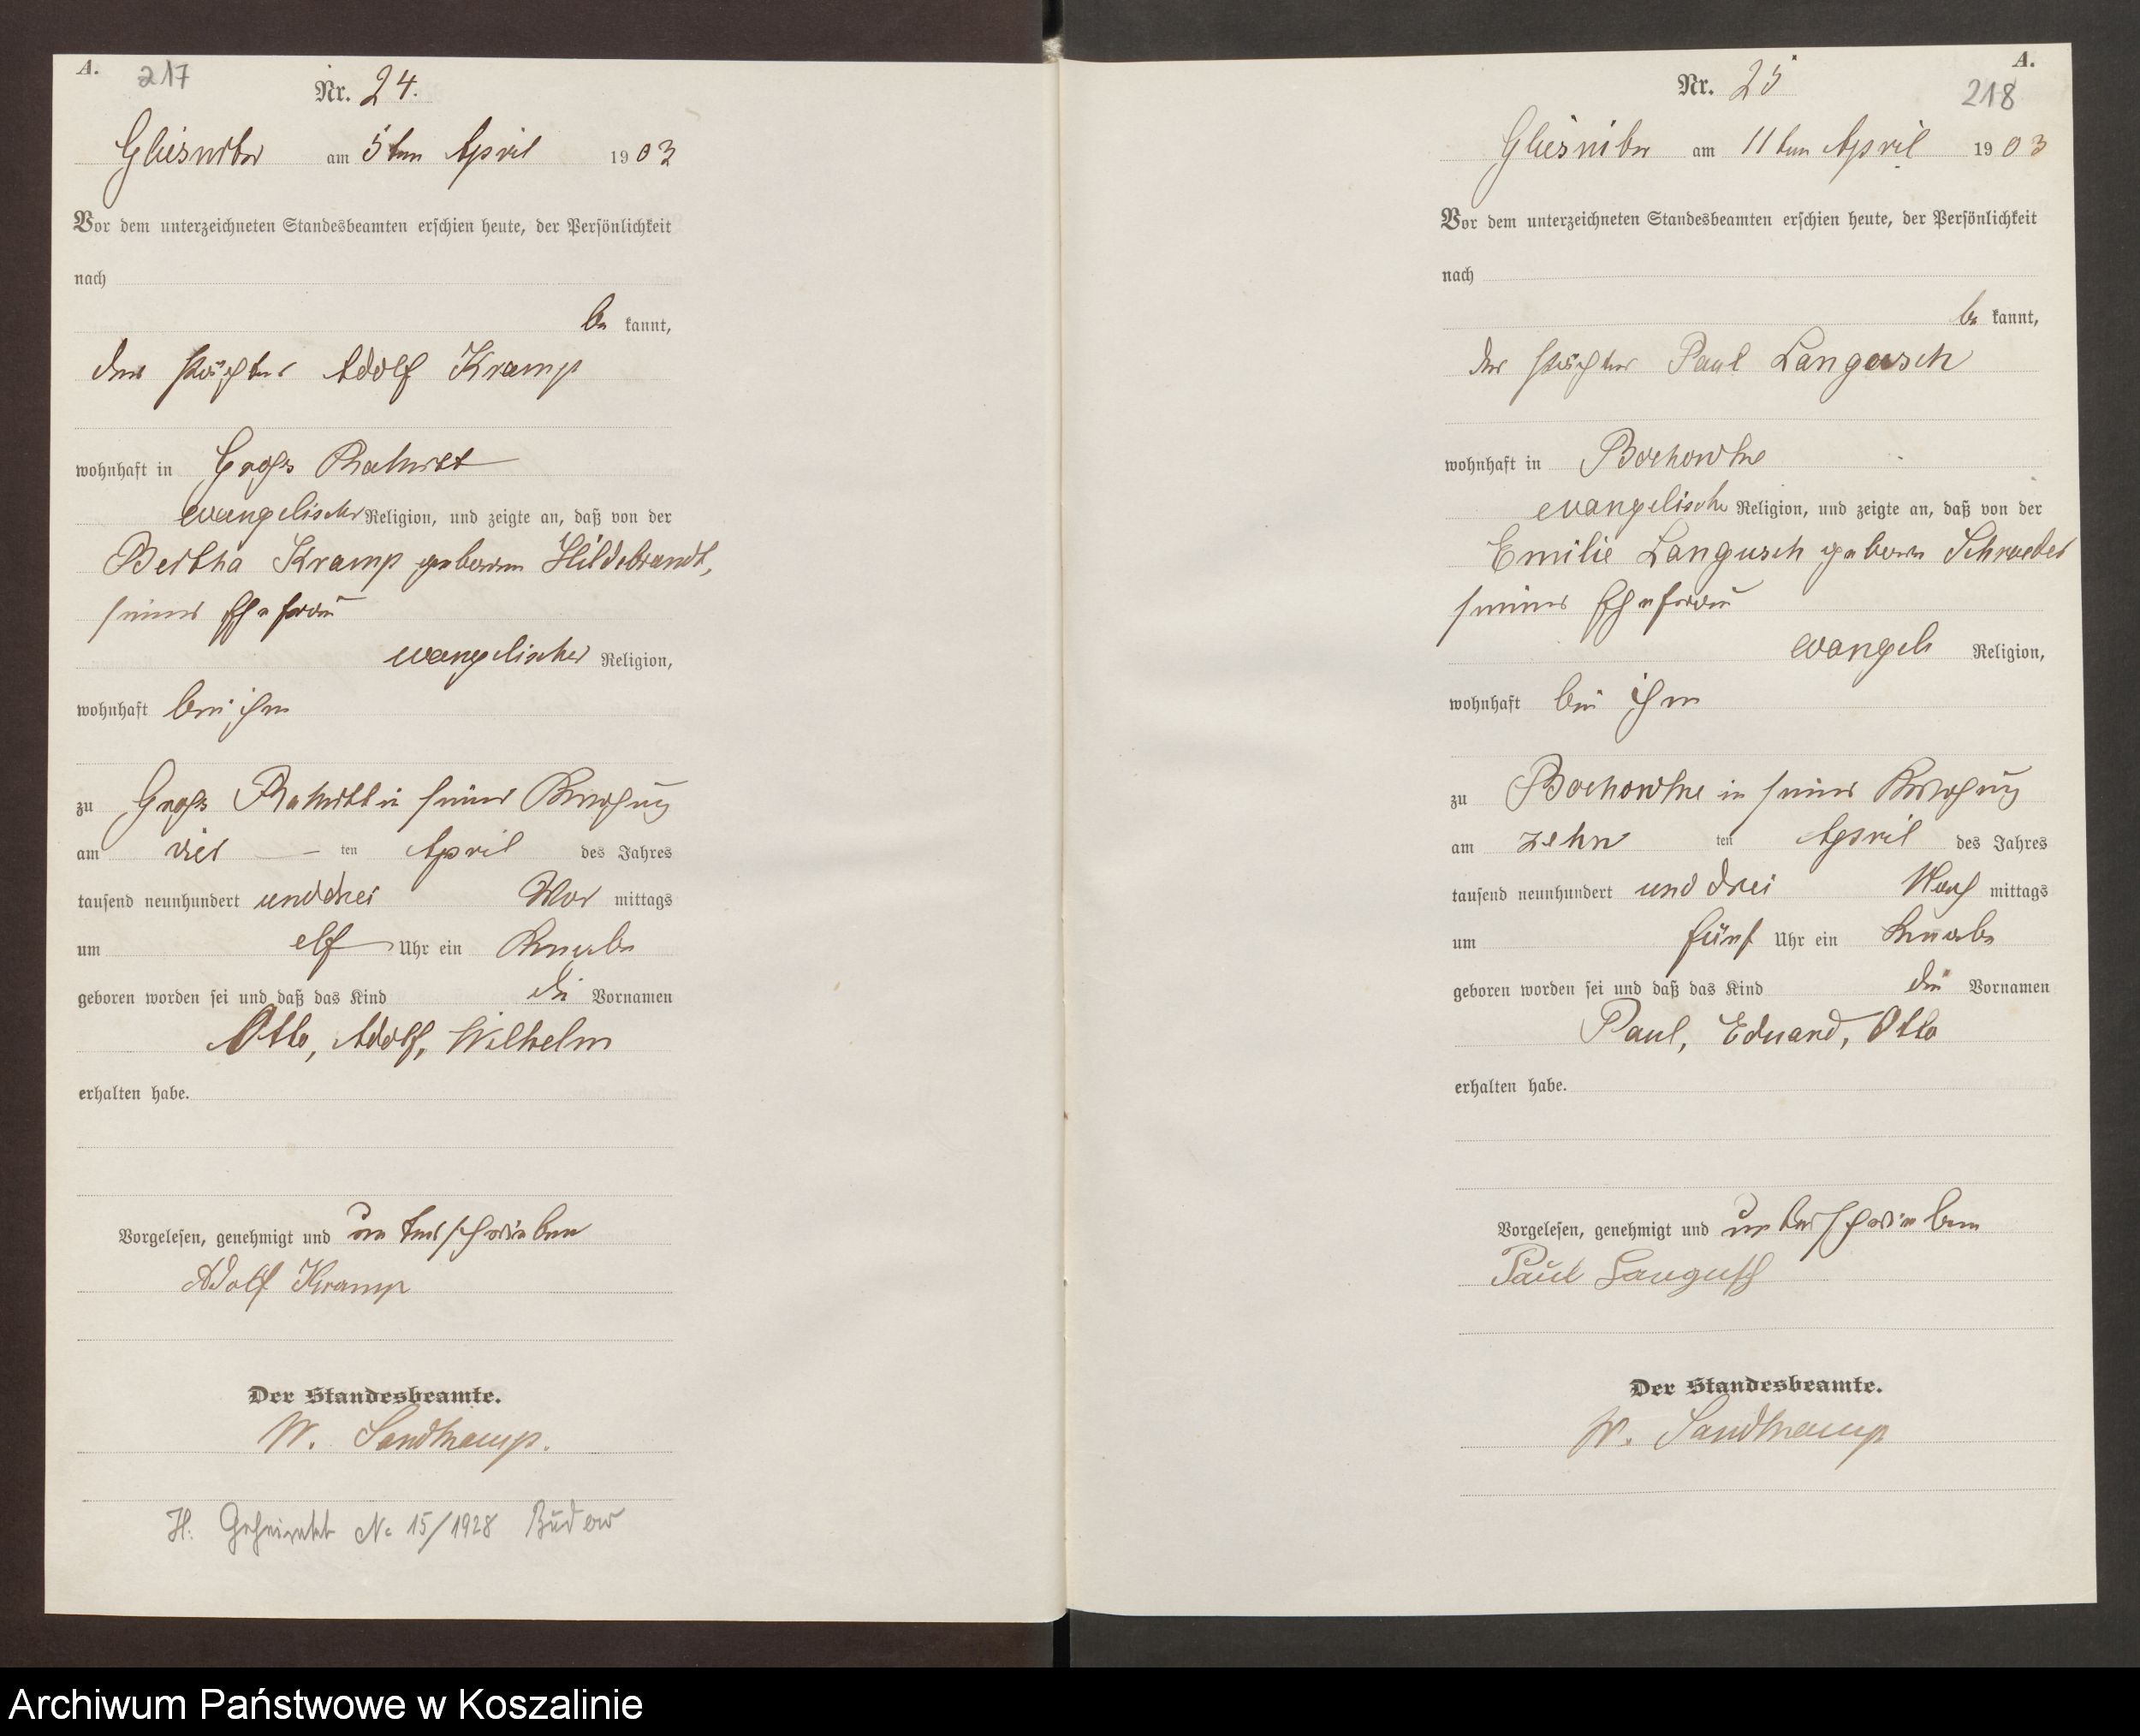 A. 217
Nr. 24.
Gliesnitz am 5ten April 1903
Vor dem unterzeichneten Standesbeamten erschien heute, der Persönlichkeit
nach
be kannt,
der Pächter Adolf Kramp
wohnhaft in Groß Rakitt
evangelischer Religion, und zeigte an, daß von der
Bertha Kramp geboren Hildebrandt,
seiner Ehefrau
evangelischer Religion,
wohnhaft bei ihm
zu Groß Rakitt in seiner Wohnung
am vier ten April des Jahres
tausend neunhundert und drei Vor mittags
um elf Uhr ein Knabe
geboren worden sei und daß das Kind die Vornamen
Otto, Adolf, Wilhelm
erhalten habe.
Vorgelesen, genehmigt und unterschrieben
Adolf Kramp
Der Standesbeamte.
W. Sandkamp.
H. Geheiratet No 15/1928 Budow
A.
Nr. 25 218
Gliesnitz am 11ten April 1903
Vor dem unterzeichneten Standesbeamten erschien heute, der Persönlichkeit
nach
be kannt,
der Pächter Paul Langusch
wohnhaft in Bochowke
evangelischer Religion, und zeigte an, daß von der
Emilie Langusch geboren Schroeder
seiner Ehefrau
evangels Religion,
wohnhaft bei ihm
zu Bochowke in seiner Wohnung
am zehn ten April des Jahres
tausend neunhundert und drei Nach mittags
um fünf Uhr ein Knabe
geboren worden sei und daß das Kind die Vornamen
Paul, Eduard, Otto
erhalten habe.
Vorgelesen, genehmigt und unterschrieben
Paul Langusch
Der Standesbeamte.
W. Sandkamp
Archiwum Państwowe w Koszalinie